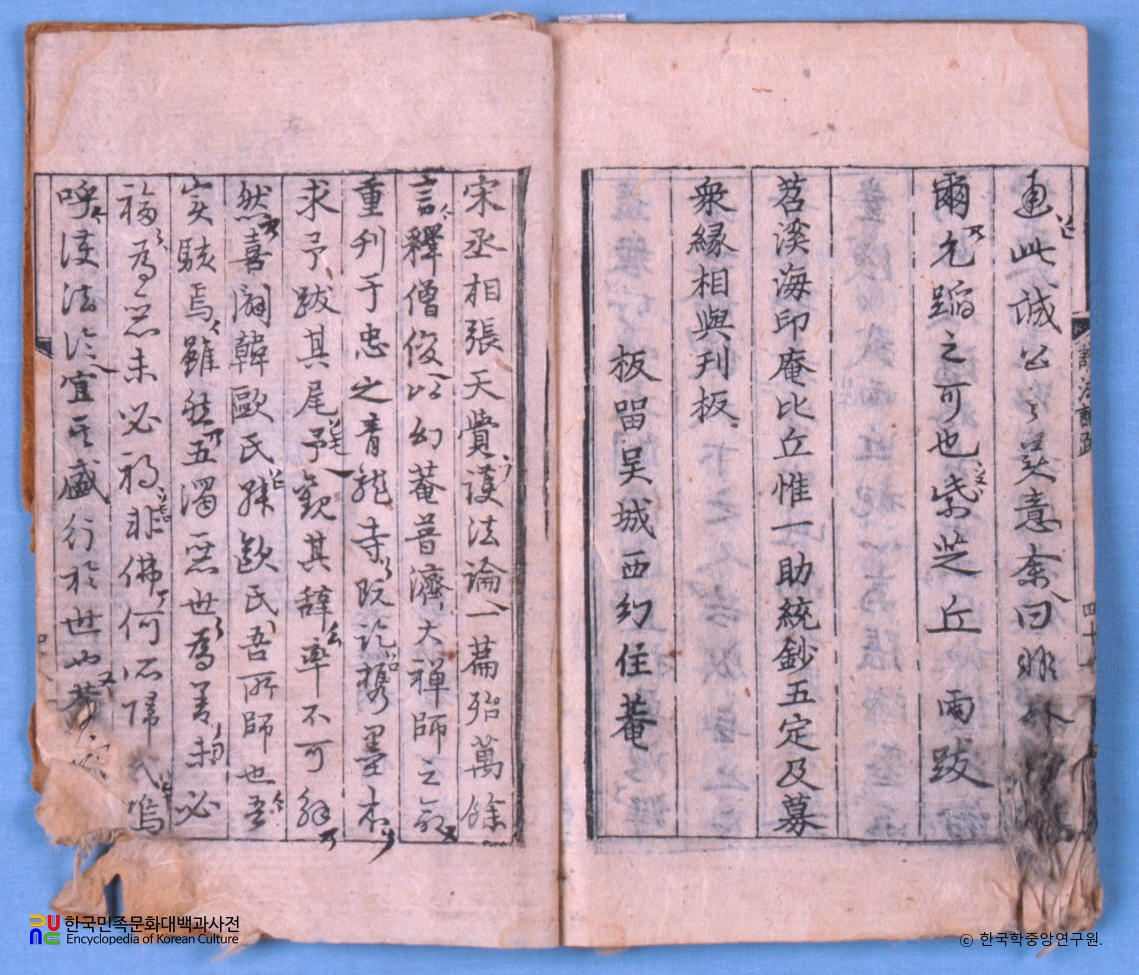 此誠公之美意余曰
爾允蹈之可也紫芝丘雨跋
苕溪海印庵比丘惟一助統鈔五定及募
衆縁相與刊板
板留吳城西幻住菴
護法論跋
四十
宋丞相張天覺護法論一篇殆萬餘
言釋僧俊以幻菴普濟大禪師之命
重刊于忠之青龍寺既訖携墨本
求予跋其尾予觀其辭率不可解
然喜闢韓歐氏歐氏吾所師也吾
實駭焉雖然五濁惡世爲善未必
福爲惡未必禍非佛何所歸哉嗚
呼護法論宜其盛行於世也
한국민족문화대백과사전
Encyclopedia of Korean Culture
© 한국학중앙연구원.